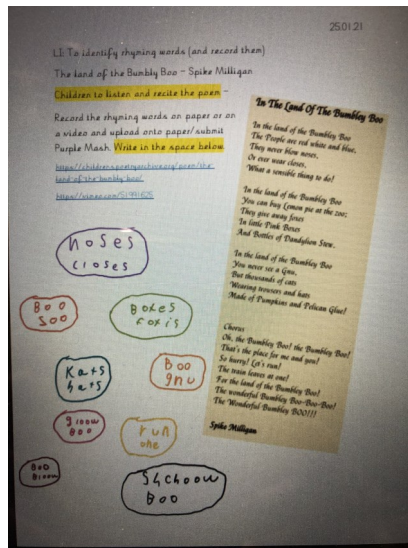 25.01.21
LI: To identify rhyming words (and record them)
The land of the Bumbly Boo – Spike Milligan
Children to listen and recite the poem –
Record the rhyming words on paper or on
a video and upload onto paper/ submit
Purple Mash. Write in the space below
noses
closes
Boo
Soo
Boxes
foxis
Kats
hats
Boo
gnu
gloow
Boo
run
one
Boo
Bloow
Shchoow
Boo
In The Land Of The Bumbley Boo
In the land of the Bumbley Boo
The People are red white and blue,
They never blow noses,
Or ever wear closes,
What a sensible thing to do!
In the land of the Bumbley Boo
You can buy Lemon pie at the zoo;
They give away foxes
In little Pink Boxes
And Bottles of Dandylion Stew.
In the land of the Bumbley Boo
You never see a Gnu,
But thousands of cats
Wearing trousers and hats
Made of Pumpkins and Pelican Glue!
Chorus
Oh, the Bumbley Boo! the Bumbley Boo!
That's the place for me and you!
So hurry! Let's run!
The train leaves at one!
For the land of the Bumbley Boo!
The wonderful Bumbley Boo-Boo-Boo!
The Wonderful Bumbley BOO!!!
Spike Milligan